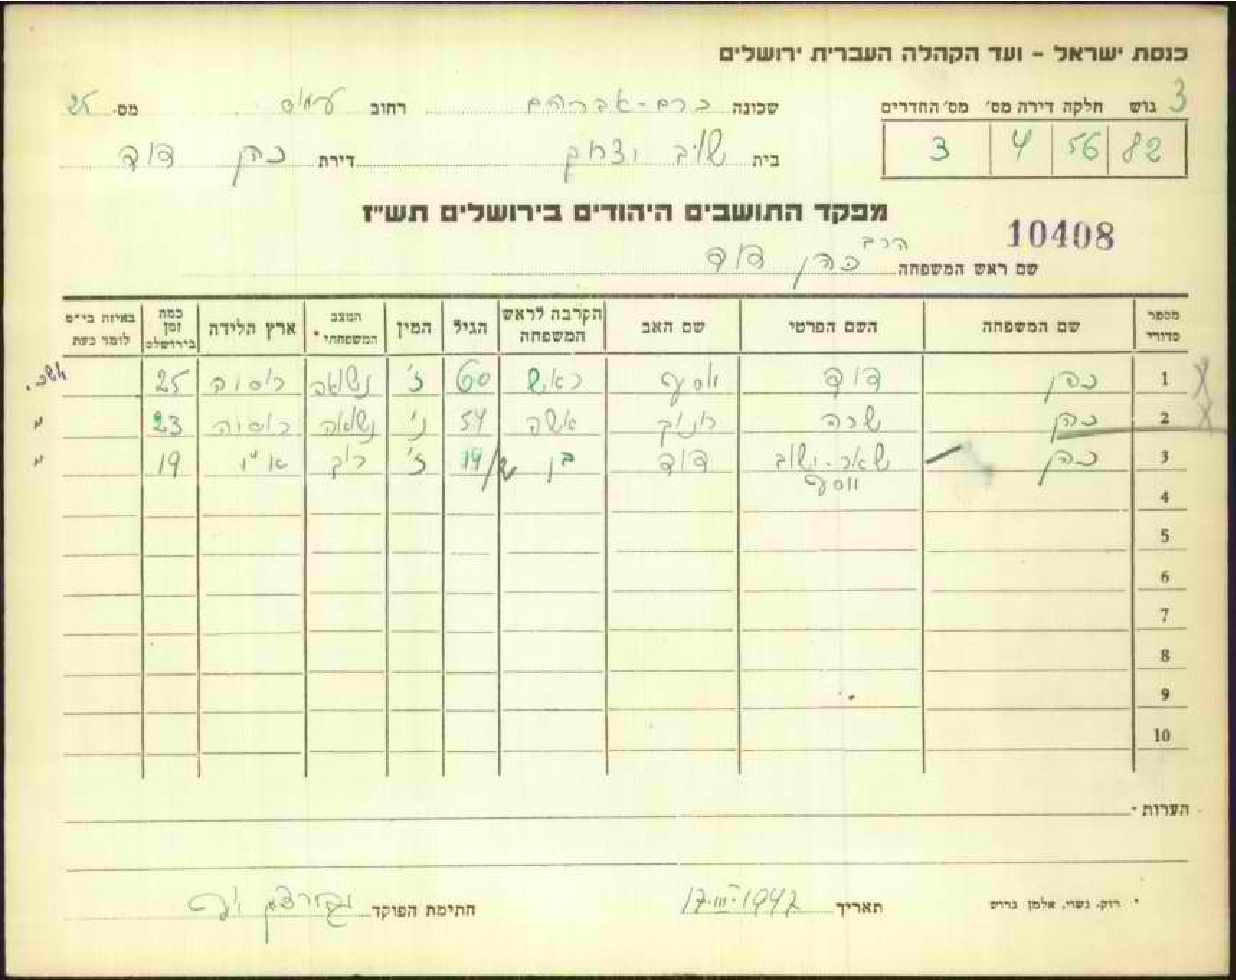 כנסת ישראל - ועד הקהלה העברית ירושלים
3 גוש חלקה דירה מס׳ מס׳ החדרים
82 56 4 3
שכונה כרם-אברהם רחוב עמוס מס. 25
בית יצחק דירת כהן דוד
מפקד התושבים היהודים בירושלים תש״ז
10408
שם ראש המשפחה הרב כהן דוד
מספר סדורי שם המשפחה השם הפרטי שם האב הקרבה לראש המשפחה הגיל המין המצב המשפחתי* ארץ הלידה כמה זמן בירושלים באיזה בי״ס לומד כעת
1 כהן דוד יוסף ראש 60 ז׳ נשואה רוסיה 25 אשכ.
2 כהן שרה חנוך אשה 54 נ׳ נשואה רוסיה 23 "
3 כהן שאר-ישוב יוסף דוד בן 19 ז׳ רוק א״י 19 "
4
5
6
7
8
9
10
הערות -
* רוק, נשוי, אלמן גרוש
תאריך 17.III.1947
חתימת הפוקד